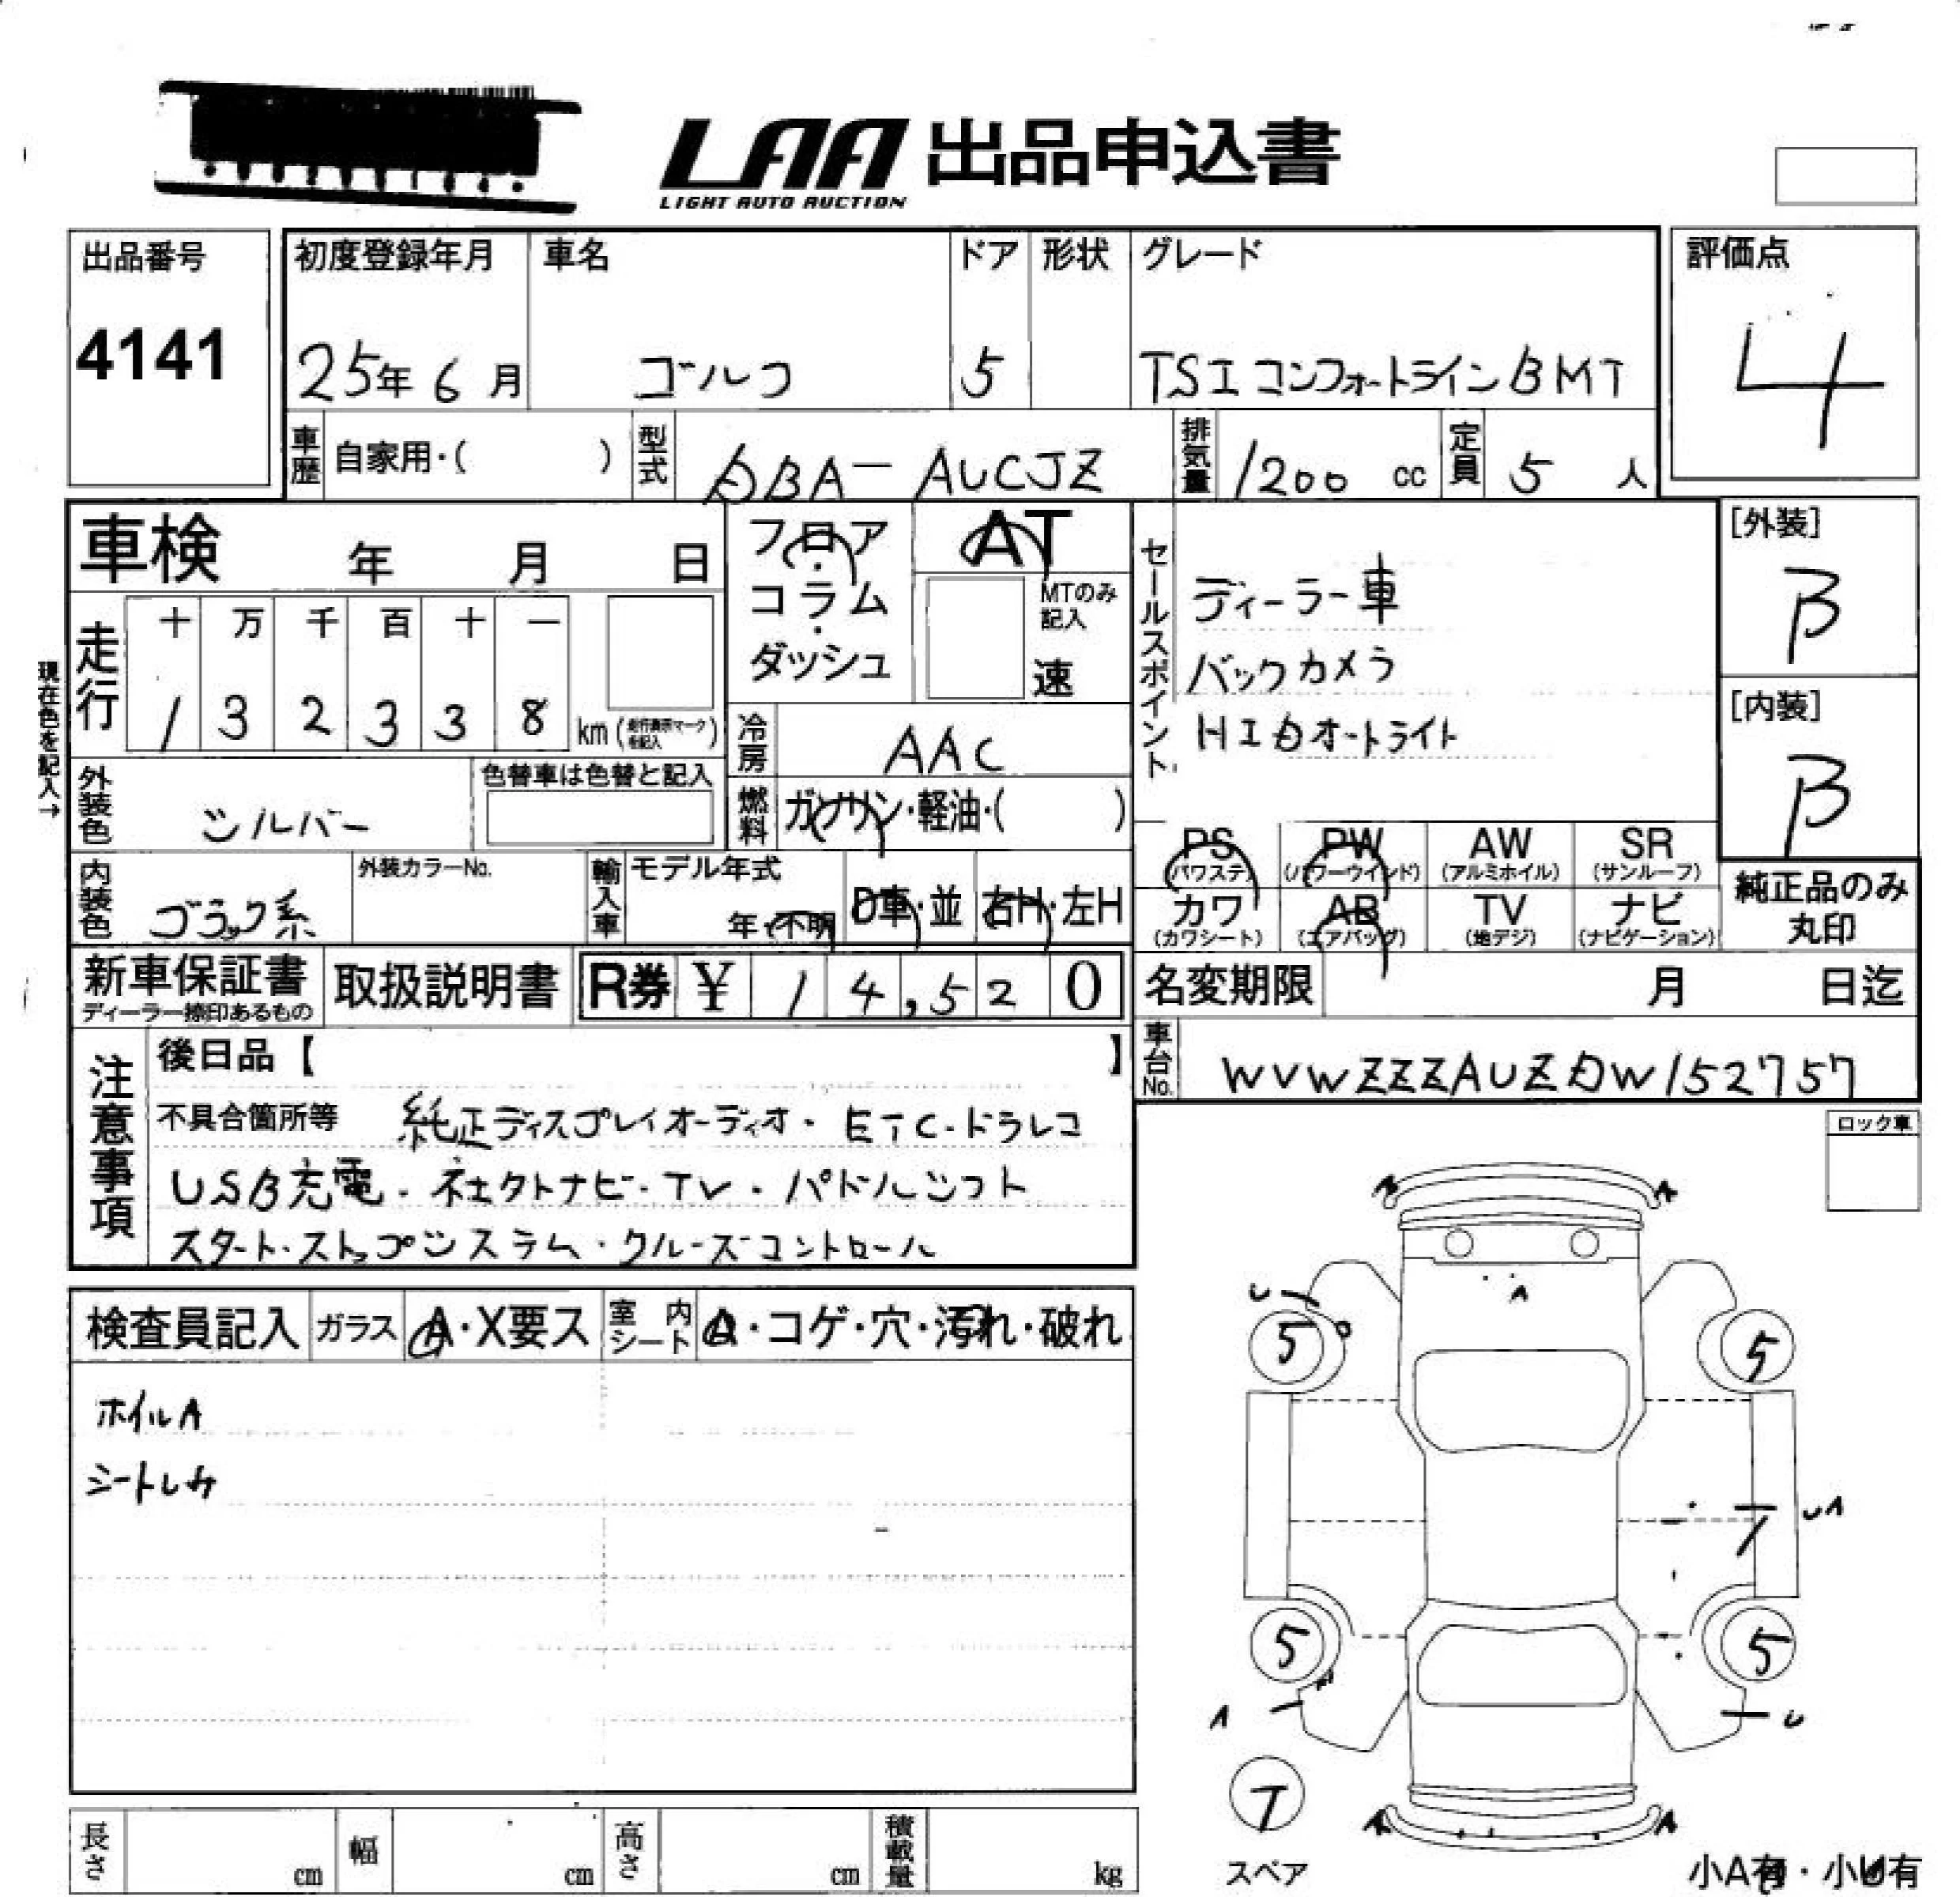 LAA 出品申込書
LIGHT AUTO AUCTION
出品番号
4141
初度登録年月
25年 6月
車名
ゴルフ
ドア
5
形状
グレード
TSIコンフォートラインBMT
評価点
4
車歴 自家用・( )
型式 DBA-AUCJZ
排気量 1200 cc
定員 5 人
車検 年 月 日
フロア・コラム・ダッシュ
AT
MTのみ記入
速
セールスポイント
ディーラー車
バックカメラ
HIDオートライト
[外装]
B
[内装]
B
現在色を記入→
走行
十 万 千 百 十 一
1 3 2 3 3 8 km
冷房 AAC
燃料 ガソリン・軽油・( )
外装色 シルバー
色替車は色替と記入
内装色 ブラック系
外装カラーNo.
輸入車 モデル年式
年・不明
D車・並 右H・左H
PS (パワステ)
PW (パワーウインド)
AW (アルミホイル)
SR (サンルーフ)
カワ (カワシート)
AB (エアバッグ)
TV (地デジ)
ナビ (ナビゲーション)
純正品のみ丸印
新車保証書
ディーラー捺印あるもの
取扱説明書
R券 ¥ 14,520
名変期限 月 日迄
車台No. WVWZZZAUZDW152757
注意事項
後日品【 】
不具合箇所等 純正ディスプレイオーディオ・ETC・ドラレコ
USB充電・ネクトナビ・TV・パドルシフト
スタート・ストップシステム・クルーズコントロール
ロック車
検査員記入 ガラス A・X要ス 室内シート A・コゲ・穴・汚れ・破れ
ホイルA
シートしみ
A A
A
U
5 5
UA
7
5 5
A U
T
スペア
A A
小A有・小U有
長さ cm 幅 cm 高さ cm 積載量 kg